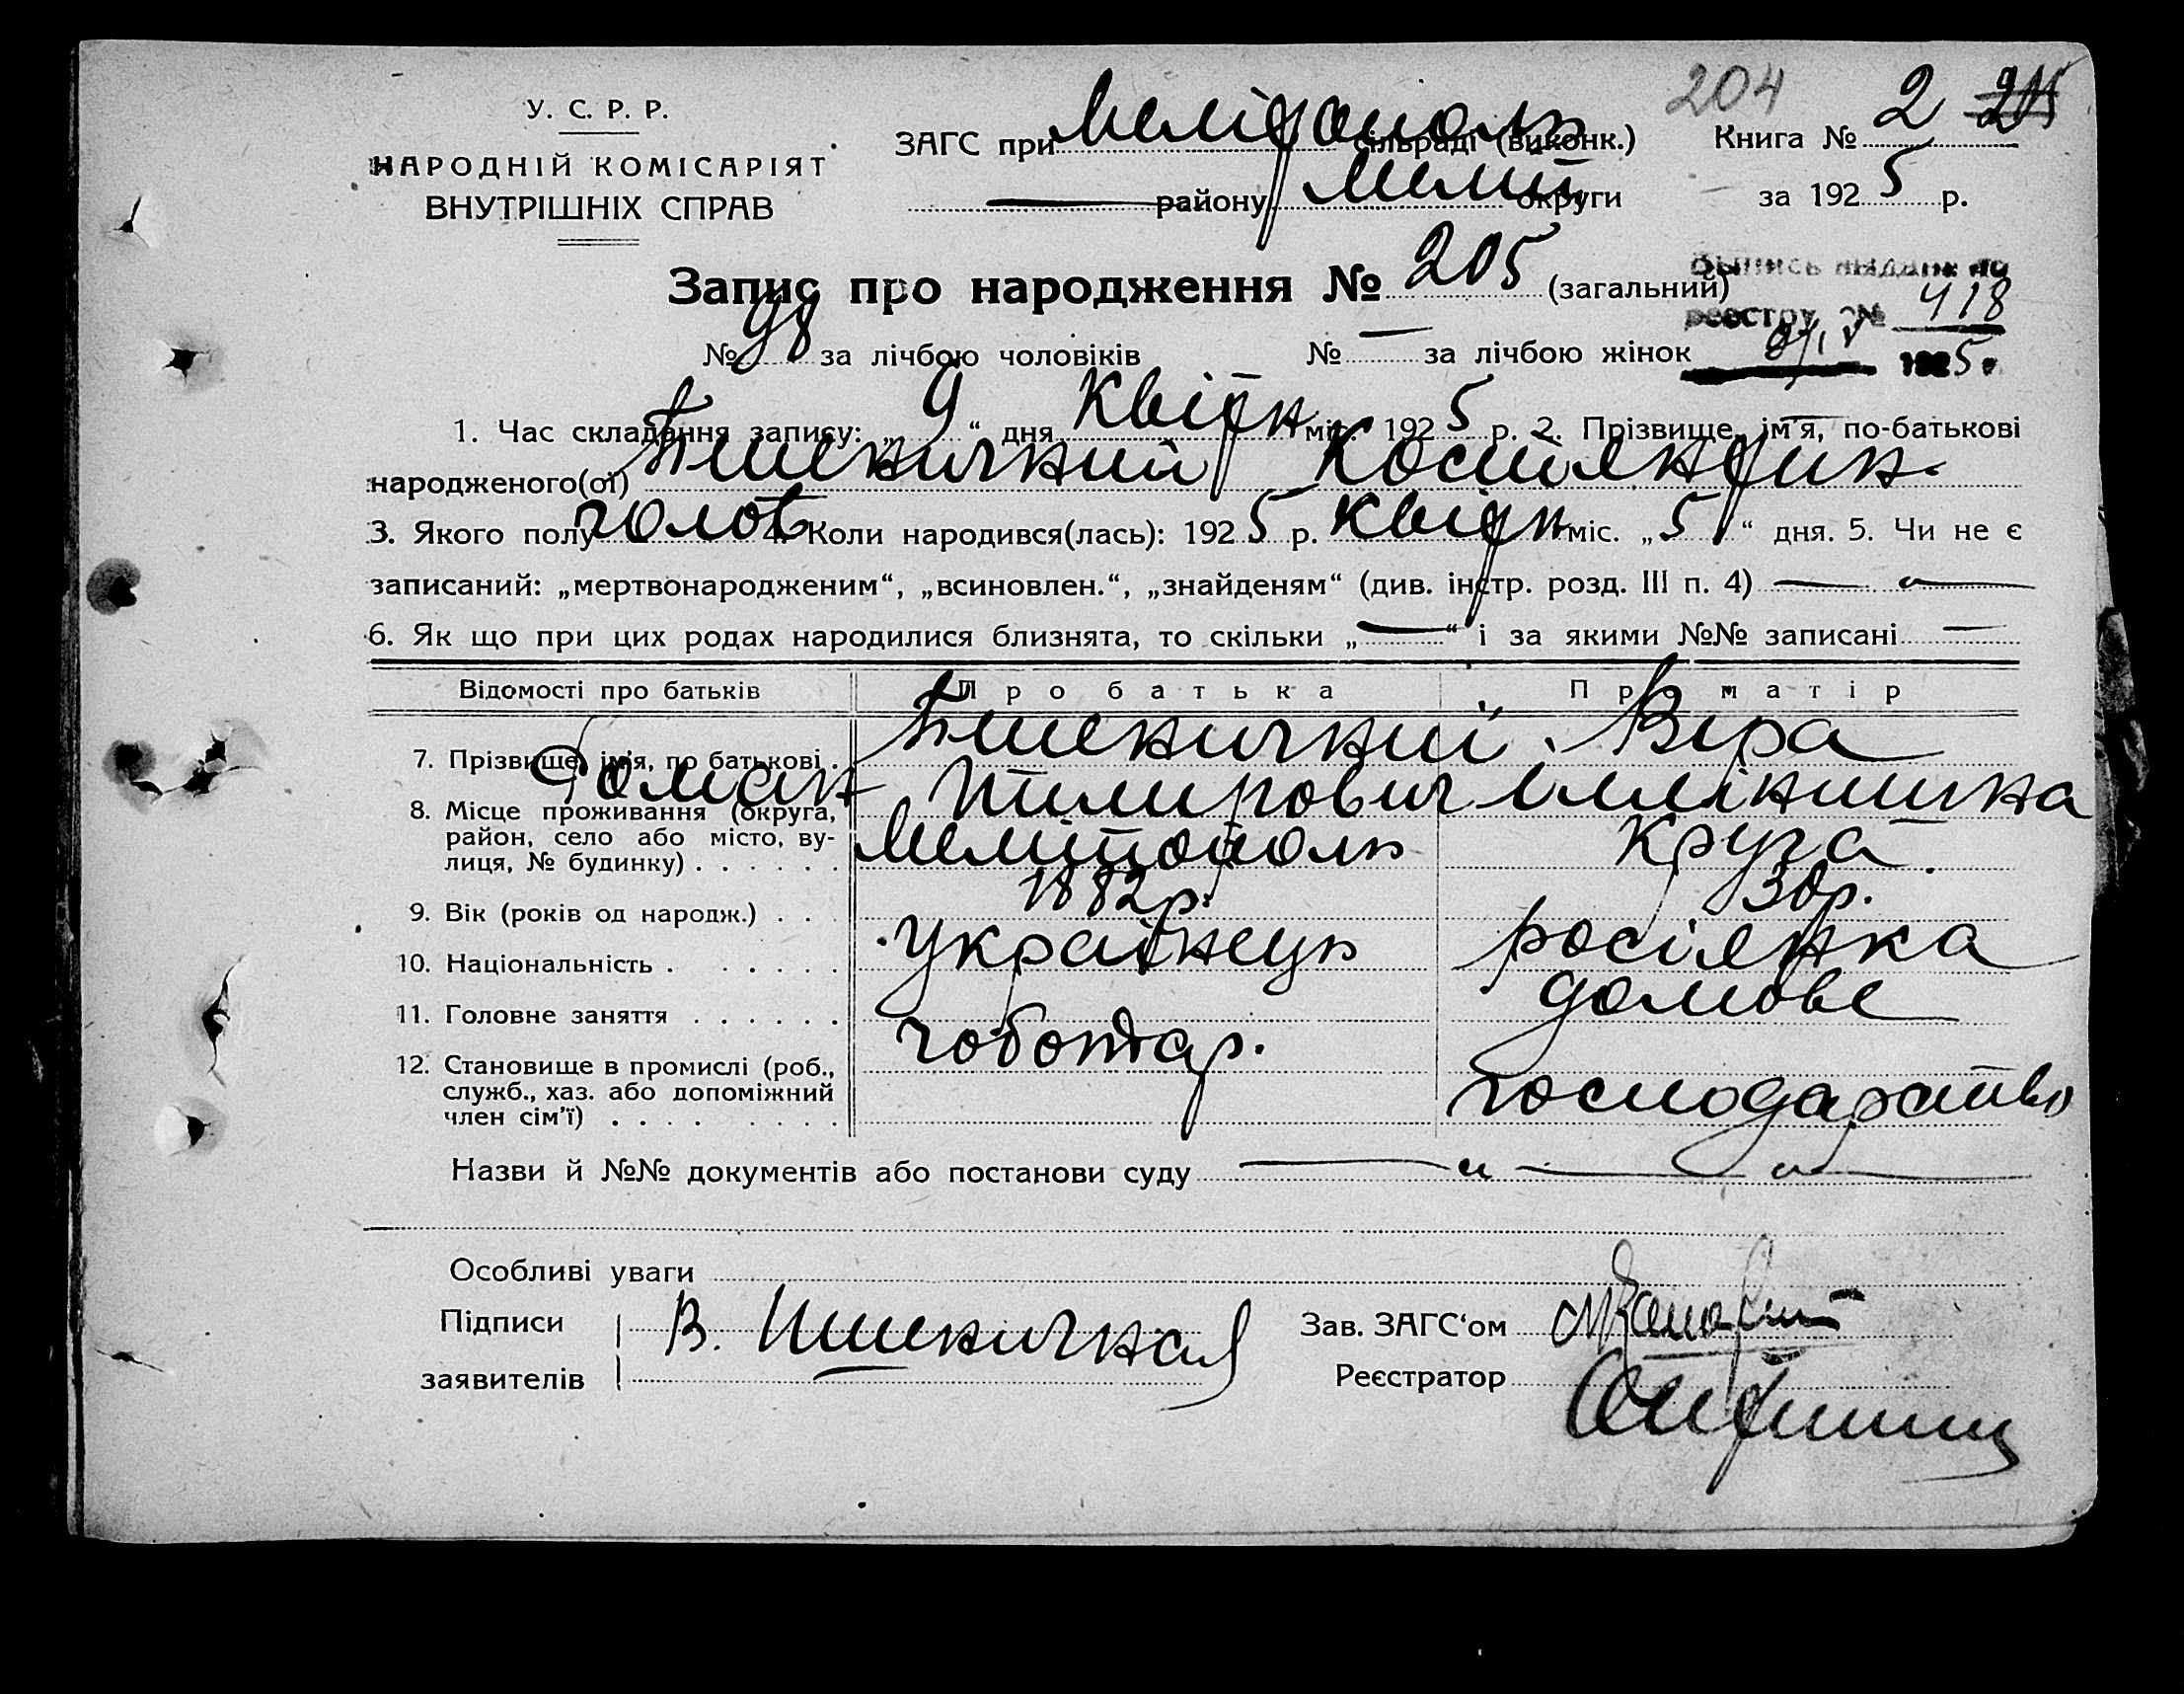 204
У. С. Р. Р.
НАРОДНІЙ КОМІСАРІЯТ
ВНУТРІШНІХ СПРАВ
ЗАГС при Мелітополь сільраді (виконк.) Книга № 2
району Меліт округи за 1925 р.
Запис про народження № 205 (загальний)
Выпись выдана по
реестру № 418
1925 г.
№ 98 за лічбою чоловіків № — за лічбою жінок
1. Час складання запису: „9“ дня Квітн міс. 1925 р. 2. Прізвище, ім'я, по-батькові
народженого(ої) Пшеничний Костянтин.
3. Якого полу чолов 4. Коли народився(лась): 1925 р. Квітн міс. „5“ дня. 5. Чи не є
записаний: „мертвонародженим“, „всиновлен.“, „знайденям“ (див. інстр. розд. III п. 4) —
6. Як що при цих родах народилися близнята, то скільки „—“ і за якими №№ записані —
Відомості про батьків Про батька Про матір
7. Прізвище, ім'я, по батькові . Пшеничний Роман Віра
8. Місце проживання (округа, район, село або місто, вулиця, № будинку) . . . . . . Мелітополь
9. Вік (років од народж.) . . . 1882 р. 30 р.
10. Національність . . . . . . Українець росіянка
11. Головне заняття . . . . . . чоботар. домове
12. Становище в промислі (роб., служб., хаз. або допоміжний член сім'ї) . . . . . . . . господарство
Назви й №№ документів або постанови суду —
Особливі уваги
Підписи заявителів В. Пшеничная
Зав. ЗАГС'ом
Реєстратор